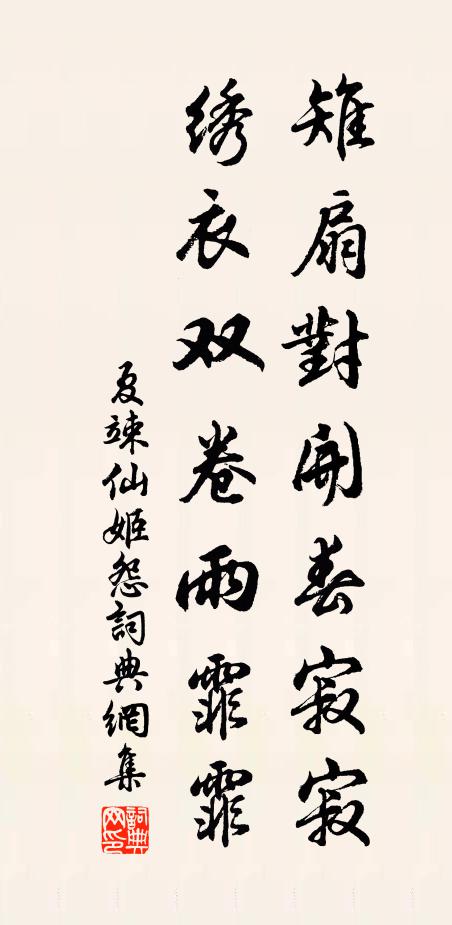 雉扇對開春寂寂
绣衣双卷雨霏霏
夏竦仙姬怨詞典網集
詞典网印